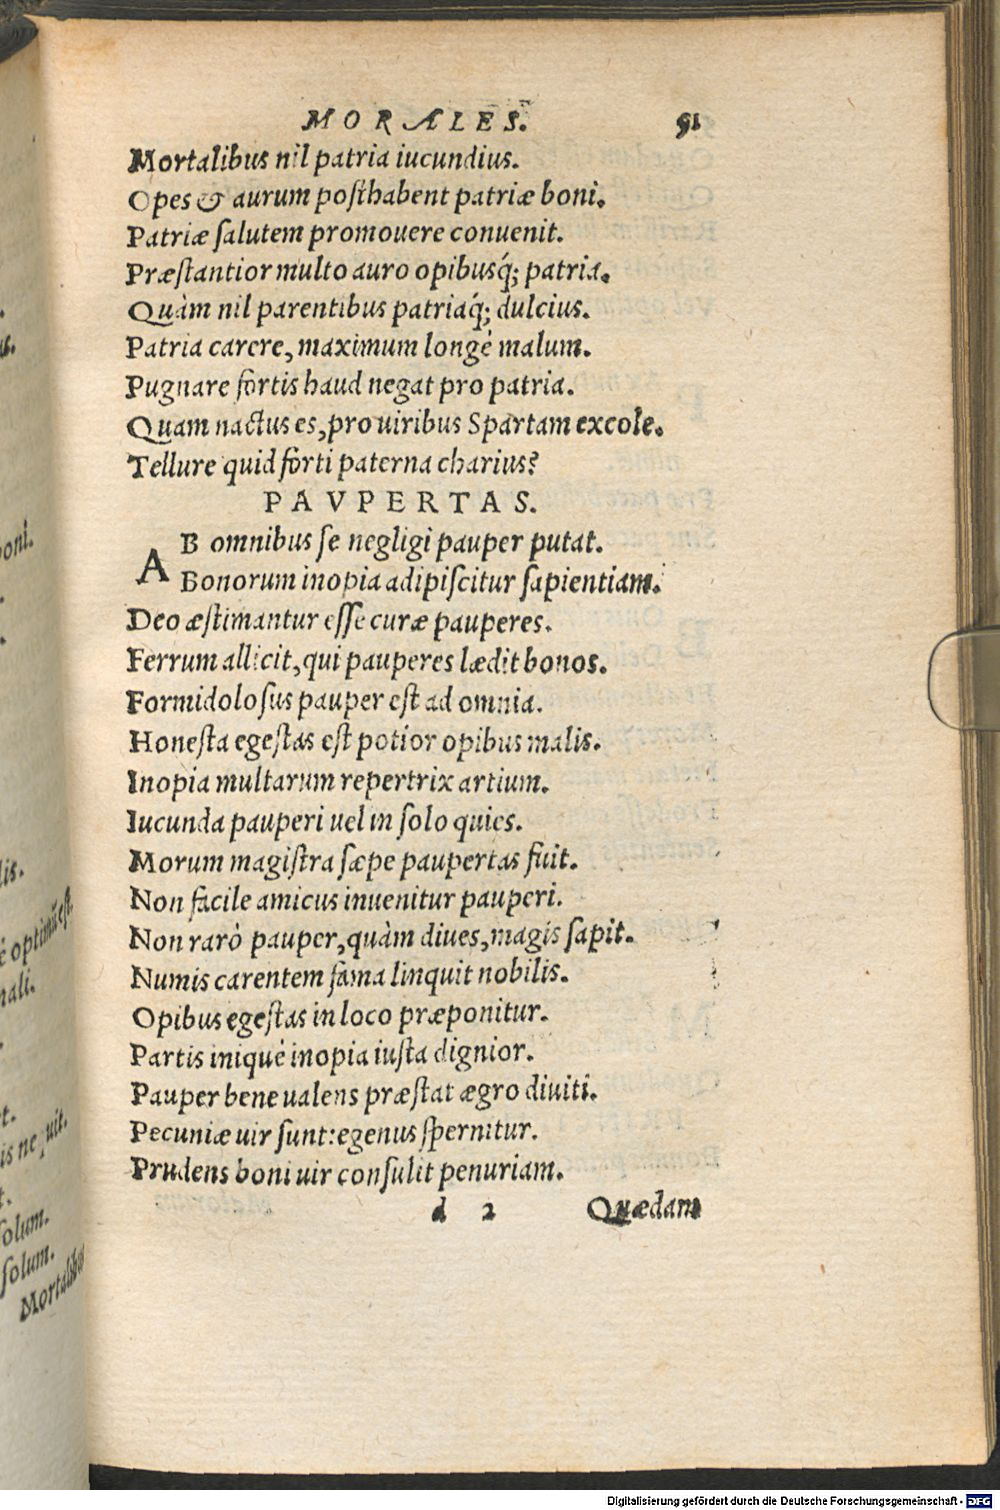 MORALES. 51
Mortalibus nil patria iucundius.
Opes & aurum posthabent patriæ boni.
Patriæ salutem promouere conuenit.
Præstantior multo auro opibusq́; patria.
Quàm nil parentibus patriaq́; dulcius.
Patria carere, maximum longè malum.
Pugnare fortis haud negat pro patria.
Quam nactus es, pro uiribus Spartam excole.
Tellure quid forti paterna charius?
PAVPERTAS.
AB omnibus se negligi pauper putat.
Bonorum inopia adipiscitur sapientiam.
Deo æstimantur esse curæ pauperes.
Ferrum allicit, qui pauperes lædit bonos.
Formidolosus pauper est ad omnia.
Honesta egestas est potior opibus malis.
Inopia multarum repertrix artium.
Iucunda pauperi uel in solo quies.
Morum magistra sæpe paupertas fuit.
Non facile amicus inuenitur pauperi.
Non rarò pauper, quàm diues, magis sapit.
Numis carentem fama linquit nobilis.
Opibus egestas in loco præponitur.
Partis iniquè inopia iusta dignior.
Pauper bene ualens præstat ægro diuiti.
Pecuniæ uir sunt: egenus spernitur.
Prudens boni uir consulit penuriam.
d 2 Quædam
Digitalisierung gefördert durch die Deutsche Forschungsgemeinschaft - DFG